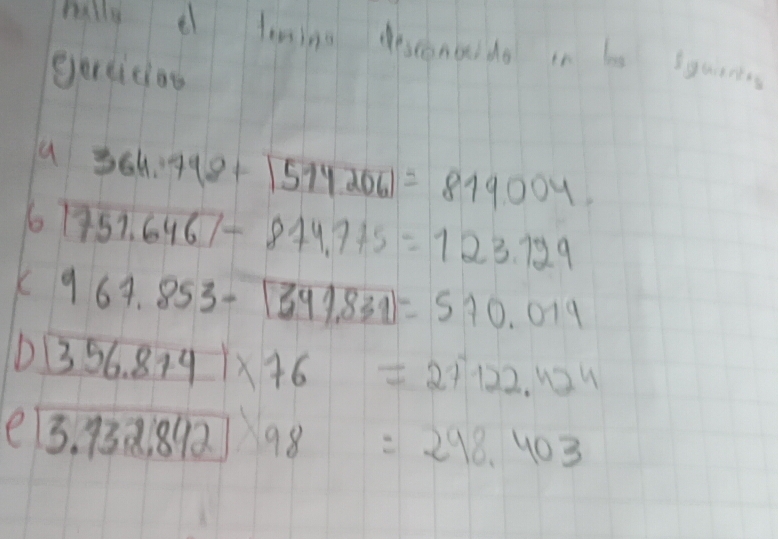 Hally el termino desconocido en los siguientes
ejercicios
a 364.798 + 514.206 = 879.004.
b 751.646 - 874.775 = 123.129
c 967.853 - 397.834 = 570.019
D 356.874 x 76 = 27 122.424
e 3.132.842 x 98 = 298.403